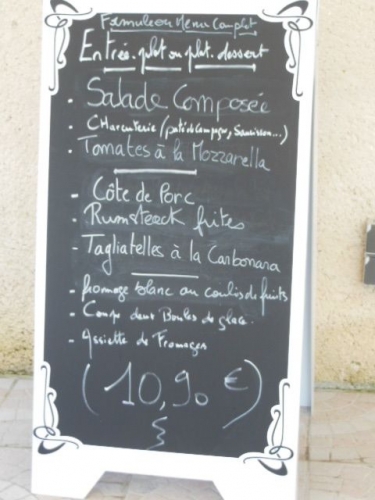 Formule ou Menu Complet
Entrée. plat ou plat. dessert
- Salade Composée
- Charcuterie (paté de campagne, Saucisson...)
- Tomates à la Mozzarella
- Côte de Porc
- Rumsteack frites
- Tagliatelles à la Carbonara
- fromage blanc au coulis de fruits
- Coupe deux Boules de glace.
- Assiette de Fromages
(10,90 €)